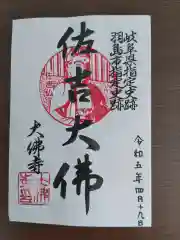 岐阜県指定史跡
羽島市指定史跡
佐吉大佛
大佛寺
令和五年四月十九日